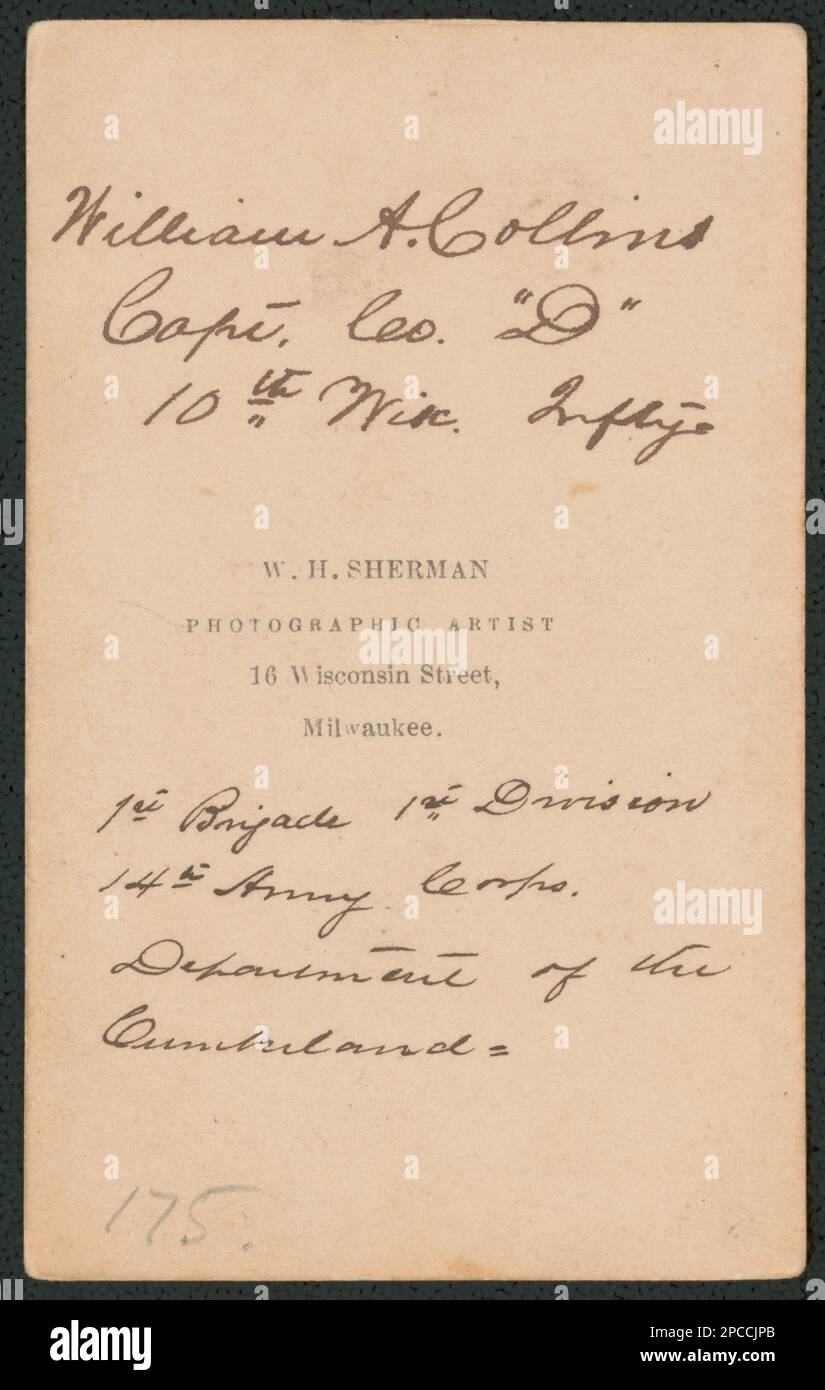 alamy
William A. Collins
Capt. Co. "D"
10th Wis. Inftry
W. H. SHERMAN
PHOTOGRAPHIC ARTIST
alamy
16 Wisconsin Street,
Milwaukee.
1st Brigade 1st Division
14th Army Corps.
alamy
Department of the
Cumberland=
175.
alamy
Image ID: 2PCCJPB
www.alamy.com